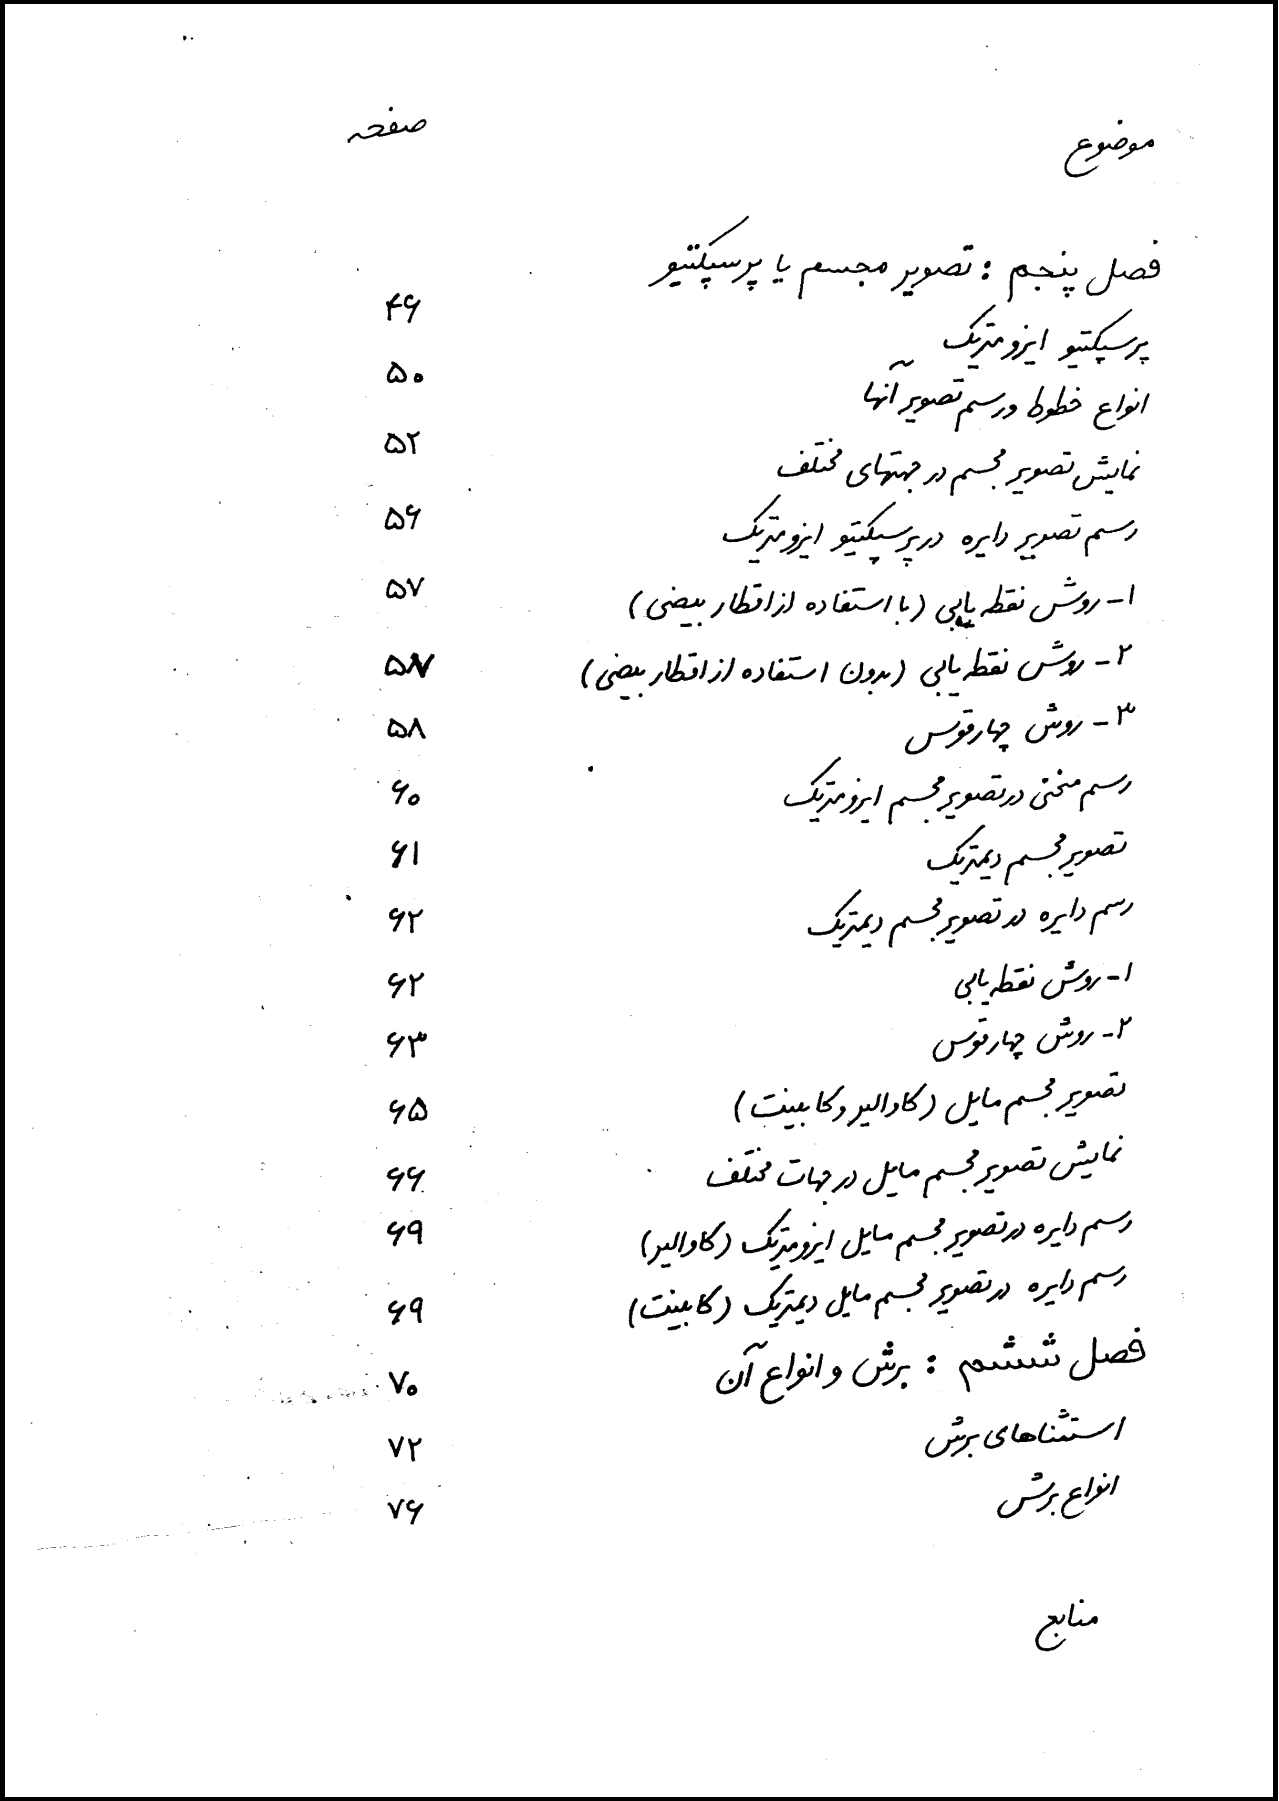 موضوع صفحه
فصل پنجم : تصویر مجسم یا پرسپکتیو
پرسپکتیو ایزومتریک ۴۶
انواع خطوط و رسم تصویر آنها ۵۰
نمایش تصویر مجسم در جهتهای مختلف ۵۲
رسم تصویر دایره در پرسپکتیو ایزومتریک ۵۶
۱- روش نقطه یابی (با استفاده از اقطار بیضی) ۵۷
۲- روش نقطه یابی (بدون استفاده از اقطار بیضی)
۳- روش چهار قوس ۵۸
رسم منحنی در تصویر مجسم ایزومتریک ۶۰
تصویر مجسم دیمتریک ۶۱
رسم دایره در تصویر مجسم دیمتریک ۶۲
۱- روش نقطه یابی ۶۲
۲- روش چهار قوس ۶۳
تصویر مجسم مایل (کاوالیر و کابینت) ۶۵
نمایش تصویر مجسم مایل در جهات مختلف ۶۶
رسم دایره در تصویر مجسم مایل ایزومتریک (کاوالیر) ۶۹
رسم دایره در تصویر مجسم مایل دیمتریک (کابینت) ۶۹
فصل ششم : برش و انواع آن ۷۰
استثناهای برش ۷۲
انواع برش ۷۶
منابع